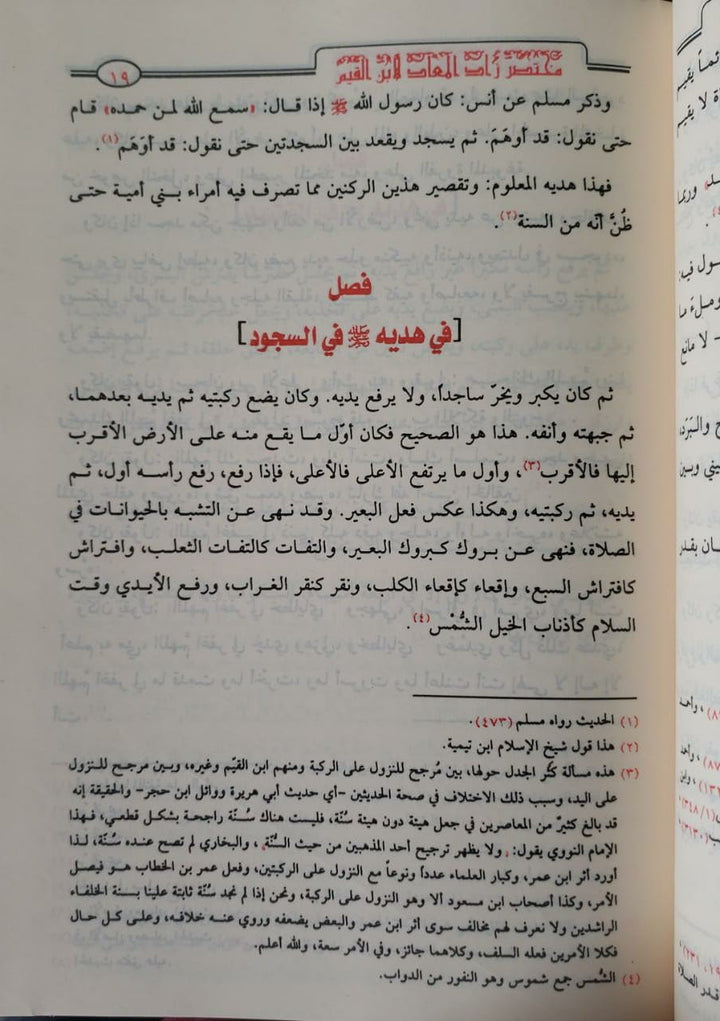 مختصر زاد المعاد لابن القيم
١٩
وذكر مسلم عن أنس: كان رسول الله ﷺ إذا قال: «سمع الله لمن حمده» قام
حتى نقول: قد أوهَمَ. ثم يسجد ويقعد بين السجدتين حتى نقول: قد أوْهَم(١).
فهذا هديه المعلوم: وتقصير هذين الركنين مما تصرف فيه أمراء بني أمية حتى
ظُنَّ أنّه من السنة(٢).
فصل
[في هديه ﷺ في السجود]
ثم كان يكبر ويخرّ ساجداً، ولا يرفع يديه. وكان يضع ركبتيه ثم يديه بعدهما،
ثم جبهته وأنفه. هذا هو الصحيح فكان أوّل ما يقع منه على الأرض الأقرب
إليها فالأقرب(٣)، وأول ما يرتفع الأعلى فالأعلى، فإذا رفع، رفع رأسه أول، ثم
يديه، ثم ركبتيه، وهكذا عكس فعل البعير. وقد نهى عن التشبه بالحيوانات في
الصلاة، فنهى عن بروك كبروك البعير، والتفات كالتفات الثعلب، وافتراش
كافتراش السبع، وإقعاء كإقعاء الكلب، ونقر كنقر الغراب، ورفع الأيدي وقت
السلام كأذناب الخيل الشُّمْس(٤).
(١) الحديث رواه مسلم (٤٧٣).
(٢) هذا قول شيخ الإسلام ابن تيمية.
(٣) هذه مسألة كثُر الجدل حولها، بين مُرجح للنزول على الركبة ومنهم ابن القيّم وغيره، وبين مرجح للنزول
على اليد، وسبب ذلك الاختلاف في صحة الحديثين -أي حديث أبي هريرة ووائل ابن حجر- والحقيقة إنه
قد بالغ كثيرٌ من المعاصرين في جعل هيئة دون هيئة سُنّة، فليست هناك سُنّة راجحة بشكل قطعي، فهذا
الإمام النووي يقول: «ولا يظهر ترجيح أحد المذهبين من حيث السُّنّة»، والبخاري لم تصح عنده سُنّة، لذا
أورد أثر ابن عمر، وكبار العلماء عدداً ونوعاً مع النزول على الركبتين، وفعل عمر بن الخطاب هو فيصل
الأمر، وكذا أصحاب ابن مسعود ألا وهو النزول على الركبة، ونحن إذا لم نجد سُنّة ثابتة علينا بسنة الخلفاء
الراشدين ولا نعرف لهم مخالف سوى أثر ابن عمر والبعض يضعفه وروي عنه خلافه، وعلى كل حال
فكلا الأمرين فعله السلف، وكلاهما جائز، وفي الأمر سعة، والله أعلم.
(٤) الشُمس جمع شموس وهو النفور من الدواب.